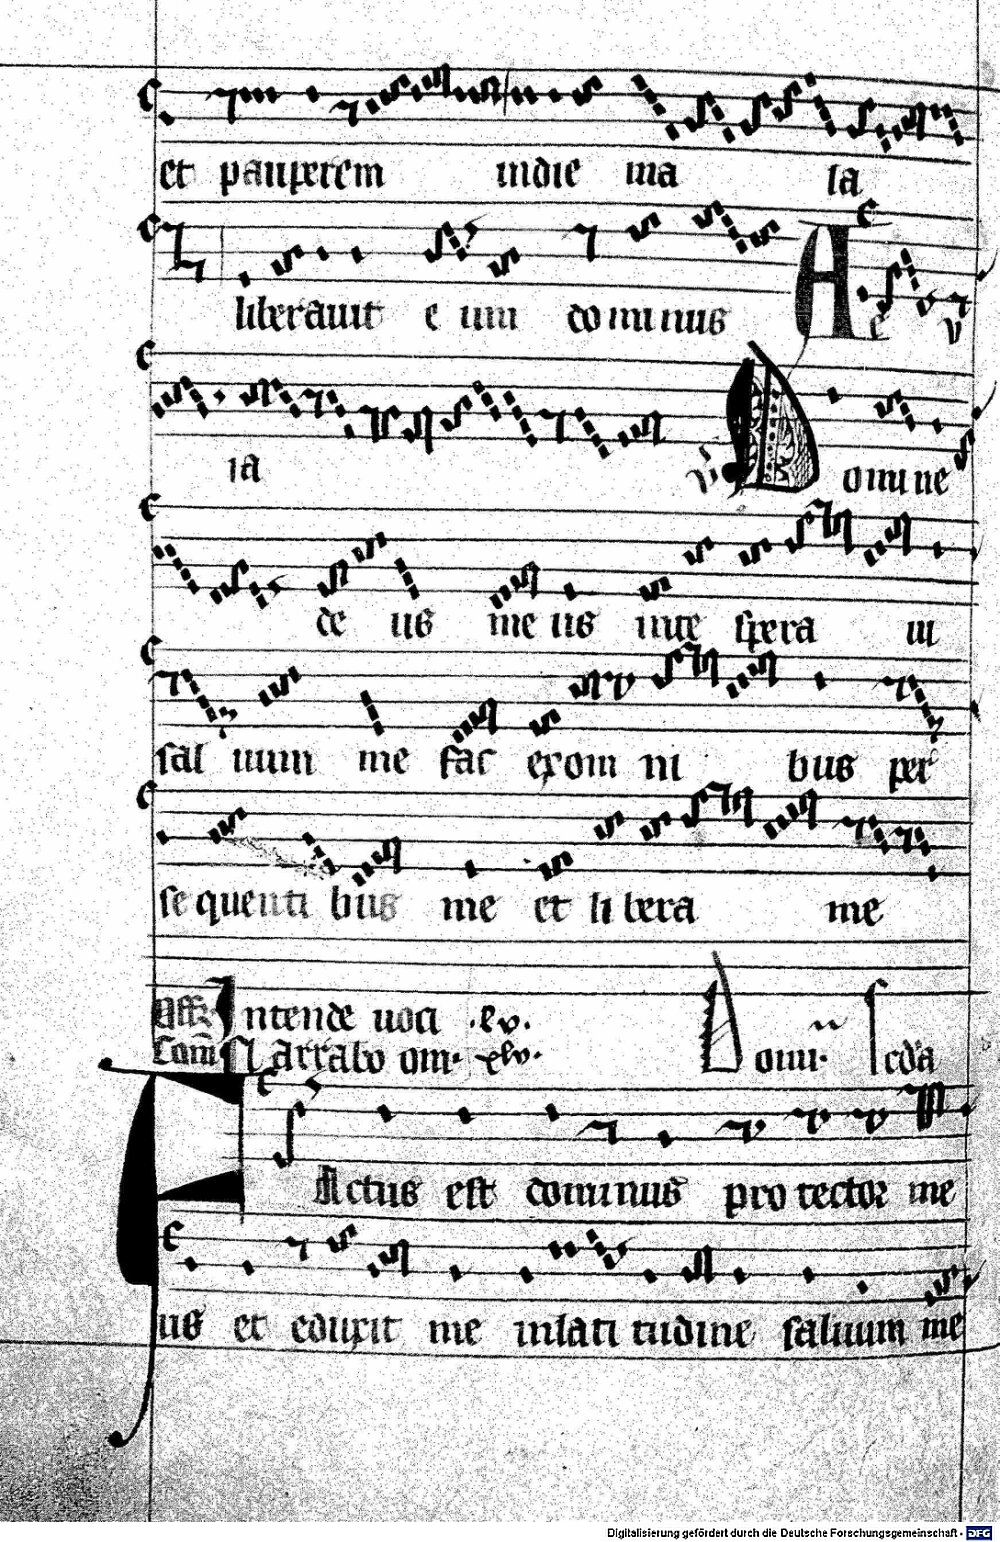 et pauperem indie ma la
liberauit e um do mi nus A e v
ia V D omi ne
de us me us inte spera ui
sal uum me fac exom ni bus per
se quenti bus me et li bera me
Off Intende uoci .lv.
Com Narrabo om. xlv. Domi. scda
FActus est dominus pro tector me
us et eduxit me inlati tudine saluum me
Digitalisierung gefördert durch die Deutsche Forschungsgemeinschaft - DFG